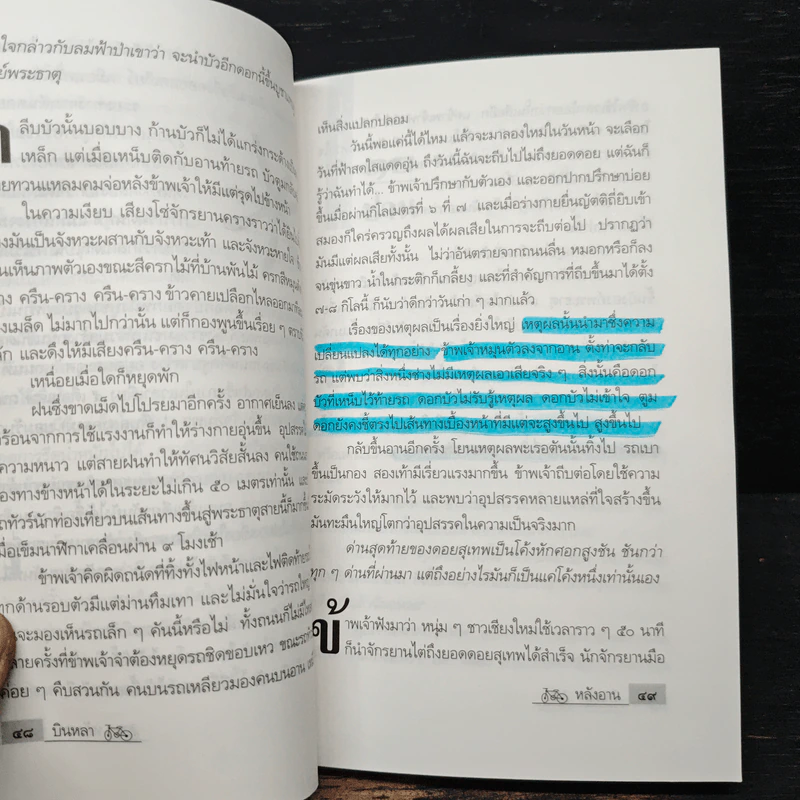 ใจกล่าวกับลมฟ้าป่าเขาว่า จะนำบัวอีกดอกนี้ขึ้นบูชา
ย์พระธาตุ
ลีบบัวนั้นบอบบาง ก้านบัวก็ไม่ได้แกร่งกระด้าง
เหล็ก แต่เมื่อเหน็บติดกับอานท้ายรถ บัวตูมกลับ
ายทวนแหลมคมจ่อหลังข้าพเจ้าให้มีแต่รุดไปข้างหน้า
ในความเงียบ เสียงโซ่จักรยานครางราวว่าได้ยิน
งมันเป็นจังหวะผสานกับจังหวะเท้า และจังหวะหายใจ
นเห็นภาพตัวเองขณะสีครกไม้ที่บ้านพันไม้ ครกสีหมุน
าง ครืน-คราง ครืน-คราง ข้าวคายเปลือกไหลออกมา
งเมล็ด ไม่มากไปกว่านั้น แต่ก็กองพูนขึ้นเรื่อย ๆ ตราบ
ลัก และดึงให้มีเสียงครืน-คราง ครืน-คราง
เหนื่อยเมื่อใดก็หยุดพัก
ฝนซึ่งขาดเม็ดไปโปรยมาอีกครั้ง อากาศเย็นลง
ร้อนจากการใช้แรงงานก็ทำให้ร่างกายอุ่นขึ้น อุปสรรค
ความหนาว แต่สายฝนทำให้ทัศนวิสัยสั้นลง คนใช้ถนน
องทางข้างหน้าได้ในระยะไม่เกิน ๕๐ เมตรเท่านั้น และ
ถทัวร์นักท่องเที่ยวบนเส้นทางขึ้นสู่พระธาตุสายนี้ก็มากขึ้น
มื่อเข็มนาฬิกาเคลื่อนผ่าน ๙ โมงเช้า
ข้าพเจ้าคิดผิดถนัดที่ทิ้งทั้งไฟหน้าและไฟติดท้าย
ทุกด้านรอบตัวมีแต่ม่านทึมเทา และไม่มั่นใจว่ารถใหญ่
จะมองเห็นรถเล็ก ๆ คันนี้หรือไม่ ทั้งถนนก็ไม่มีไหล่
ลายครั้งที่ข้าพเจ้าจำต้องหยุดรถชิดขอบเหว ขณะรถ
ค่อย ๆ คืบสวนกัน คนบนรถเหลียวมองคนบนอาน
๔๘ บินหลา
เห็นสิ่งแปลกปลอม
วันนี้พอแค่นี้ได้ไหม แล้วจะมาลองใหม่ในวันหน้า จะเลือก
วันที่ฟ้าสดใสแดดอุ่น ถึงวันนี้ฉันจะถีบไปไม่ถึงยอดดอย แต่ฉันก็
รู้ว่าฉันทำได้... ข้าพเจ้าปรึกษากับตัวเอง และออกปากปรึกษาบ่อย
ขึ้นเมื่อผ่านกิโลเมตรที่ ๖ ที่ ๗ และเมื่อร่างกายยื่นญัตติถี่ยิบเข้า
สมองก็ใคร่ครวญถึงผลได้ผลเสียในการจะถีบต่อไป ปรากฏว่า
มันมีแต่ผลเสียทั้งนั้น ไม่ว่าอันตรายจากถนนลื่น หมอกหรือก็ลง
จนขุ่นขาว น้ำในกระติกก็เกลี้ยง และที่สำคัญการที่ถีบขึ้นมาได้ตั้ง
๗-๘ กิโลนี้ ก็นับว่าดีกว่าวันเก่า ๆ มากแล้ว
เรื่องของเหตุผลเป็นเรื่องยิ่งใหญ่ เหตุผลนั้นนำมาซึ่งความ
เปลี่ยนแปลงได้ทุกอย่าง ข้าพเจ้าหมุนตัวลงจากอาน ตั้งท่าจะกลับ
รถ แต่พบว่าสิ่งหนึ่งช่างไม่มีเหตุผลเอาเสียจริง ๆ สิ่งนั้นคือดอก
บัวที่เหน็บไว้ท้ายรถ ดอกบัวไม่รับรู้เหตุผล ดอกบัวไม่เข้าใจ ตูม
ดอกยังคงชี้ตรงไปเส้นทางเบื้องหน้าที่มีแต่จะสูงขึ้นไป สูงขึ้นไป
กลับขึ้นอานอีกครั้ง โยนเหตุผลพะเรอตันนั้นทิ้งไป รถเบา
ขึ้นเป็นกอง สองเท้ามีเรี่ยวแรงมากขึ้น ข้าพเจ้าถีบต่อโดยใช้ความ
ระมัดระวังให้มากไว้ และพบว่าอุปสรรคหลายแหล่ที่ใจสร้างขึ้น
มันทะมึนใหญ่โตกว่าอุปสรรคในความเป็นจริงมาก
ด่านสุดท้ายของดอยสุเทพเป็นโค้งหักศอกสูงชัน ชันกว่า
ทุก ๆ ด่านที่ผ่านมา แต่ถึงอย่างไรมันก็เป็นแค่โค้งหนึ่งเท่านั้นเอง
ข้าพเจ้าฟังมาว่า หนุ่ม ๆ ชาวเชียงใหม่ใช้เวลาราว ๆ ๕๐ นาที
ก็นำจักรยานไต่ถึงยอดดอยสุเทพได้สำเร็จ นักจักรยานมือ
หลังอาน ๔๙